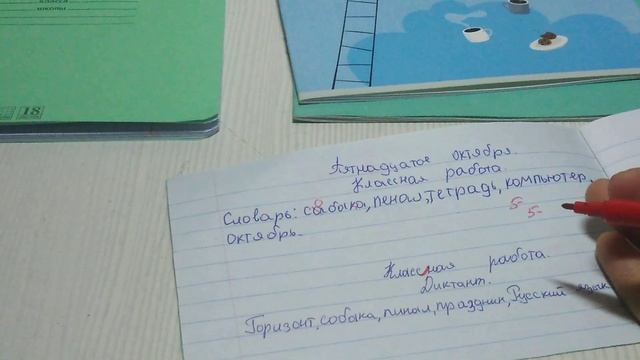 класса
школы
18
Пятнадцатое октября.
Классная работа.
Словарь: собыка, пенал, тетрадь, компьютер,
октябрь.
5-
5-
Классная работа.
Диктант.
Горизонт, собака, пинал, праздник, Русский язык